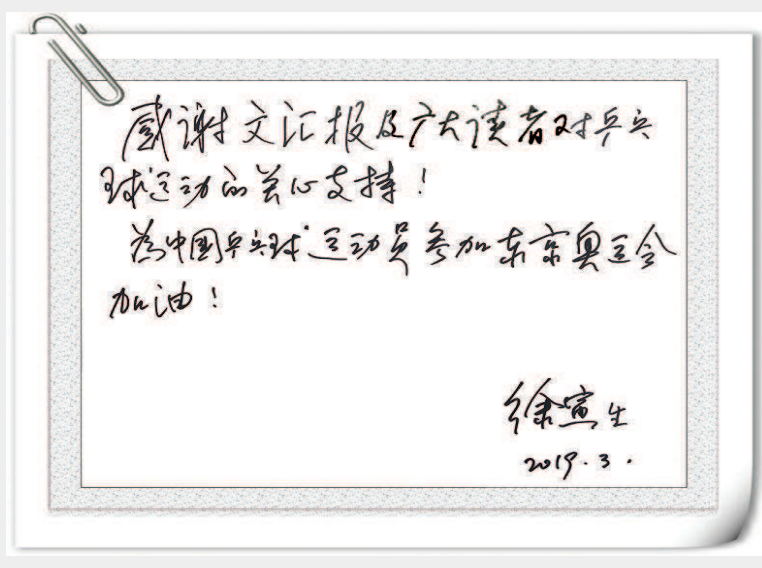 感谢文汇报及广大读者对乒乓
球运动的关心支持！
为中国乒乓球运动员参加东京奥运会
加油！
徐寅生
2019.3.